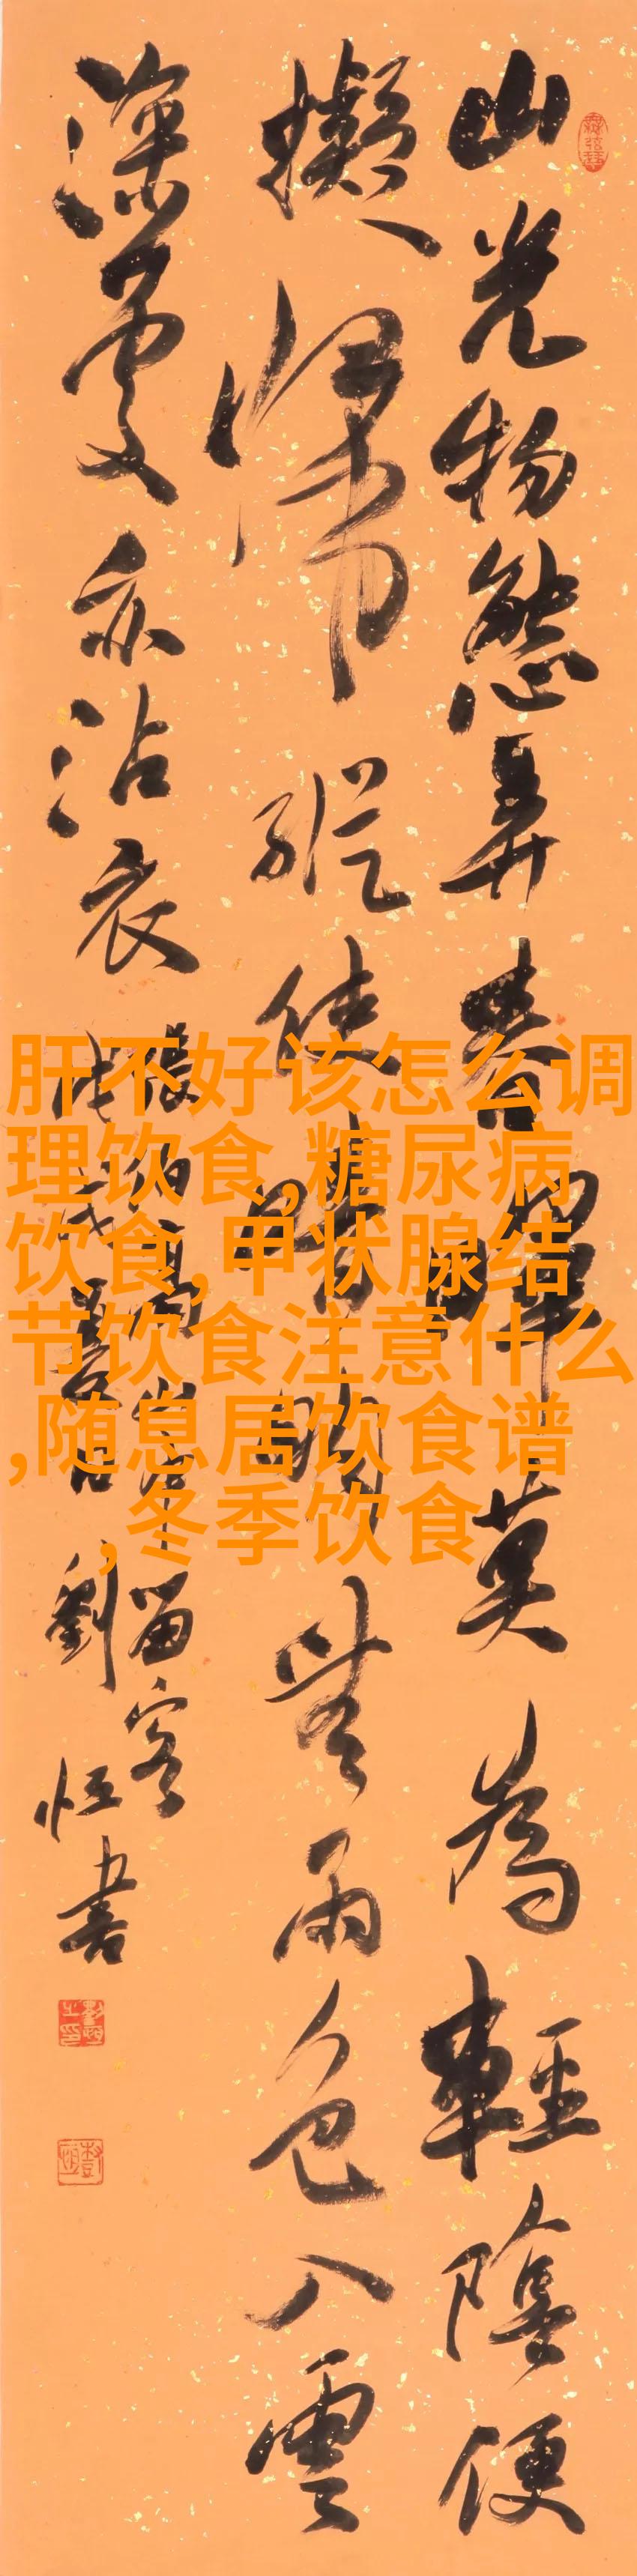 山光物態弄春暉莫為輕陰便
擬歸縱使晴明無雨色入雲
深處亦沾衣
張伯高山中留客
劉恒書
肝不好该怎么调
理饮食,糖尿病
饮食,甲状腺结
节饮食注意什么
,随息居饮食谱
,冬季饮食